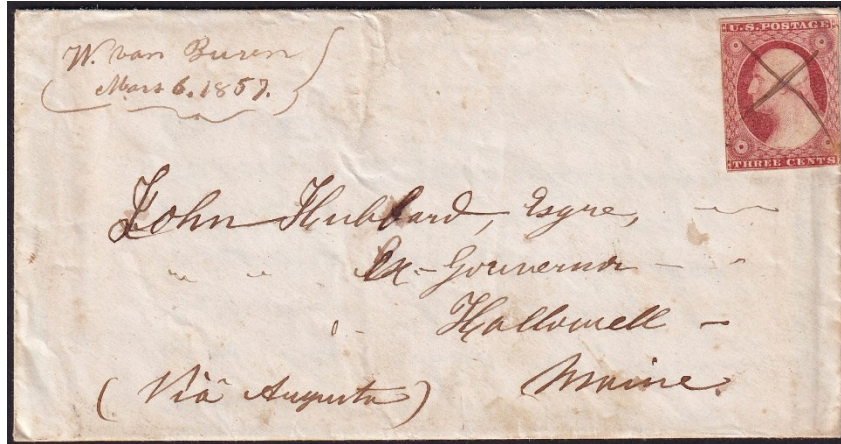 W. van Buren
Mars 6. 1857.
U.S. POSTAGE
THREE CENTS
John Hubbard, Esqre,
" " Ex-Gouvernor
Hallowell
Maine.
(Viâ Augusta)